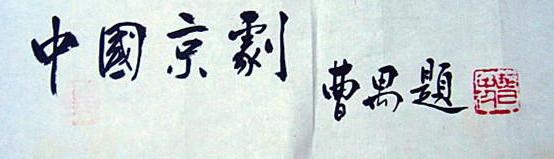 中國京劇
曹禺題